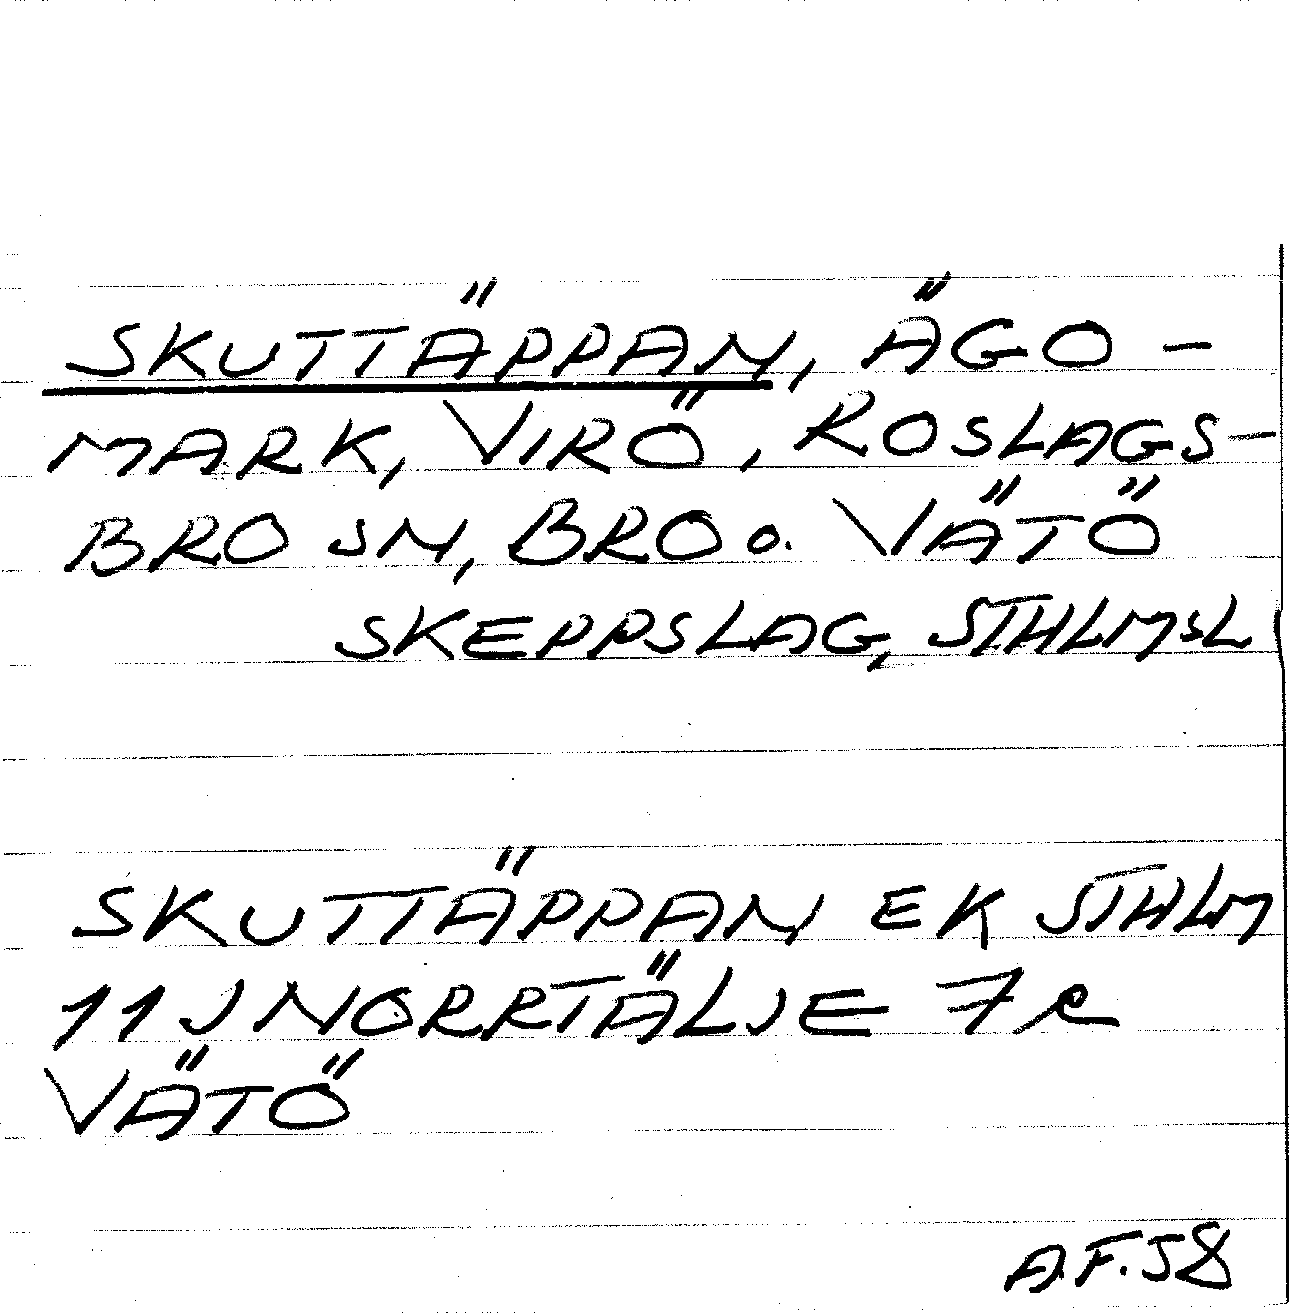 SKUTTÄPPAN, ÄGO-
MARK, VIRÖ, ROSLAGS-
BRO SN, BRO o. VÄTÖ
SKEPPSLAG, STHLMSL
SKUTTÄPPAN EK STHLM
11J NORRTÄLJE 7 e
VÄTÖ
A.F. 58